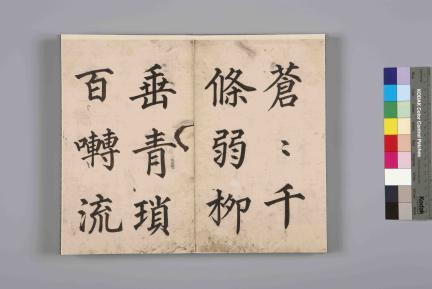 蒼〻千
條弱柳
垂青瑣
百囀流
KODAK Color Control Patches
Kodak